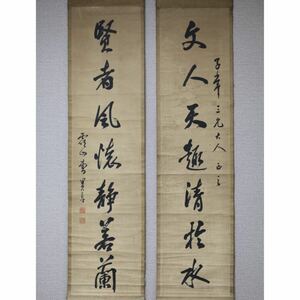 文人天趣清於水
子年三兄大人正之
賢者風懷靜若蘭